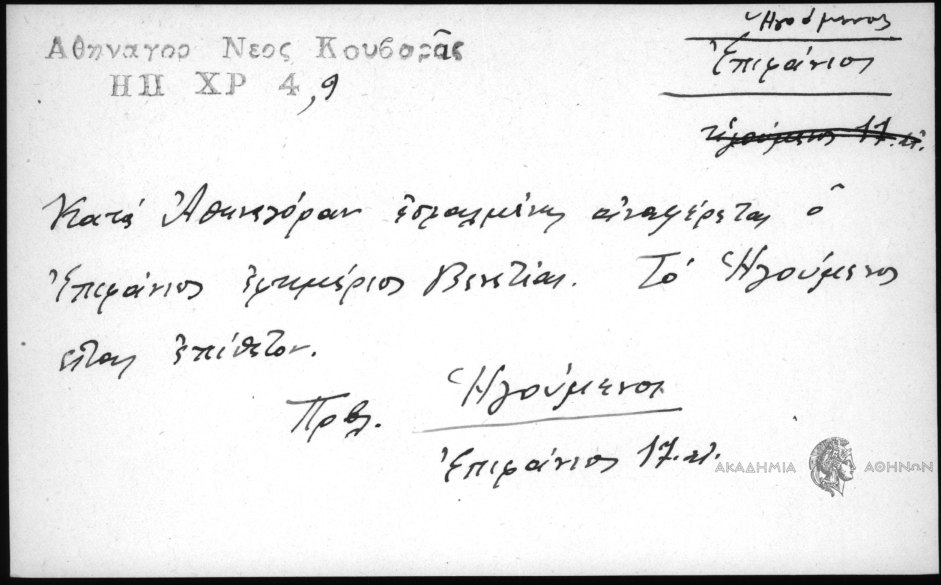 Ἡγούμενος
Ἐπιφάνιος
Ἡγούμενος 17. αἰ.
Αθηναγορ Νεος Κουβαρᾶς
ΗΠ ΧΡ 4,9
Κατά Ἀθηναγόραν ἐσφαλμένως ἀναφέρεται ὁ
Ἐπιφάνιος ἐφημέριος Βενετίας. Τό Ἡγούμενος
εἶναι ἐπίθετον.
Πρβλ. Ἡγούμενος
Ἐπιφάνιος 17. αἰ.
ΑΚΑΔΗΜΙΑ ΑΘΗΝΩΝ